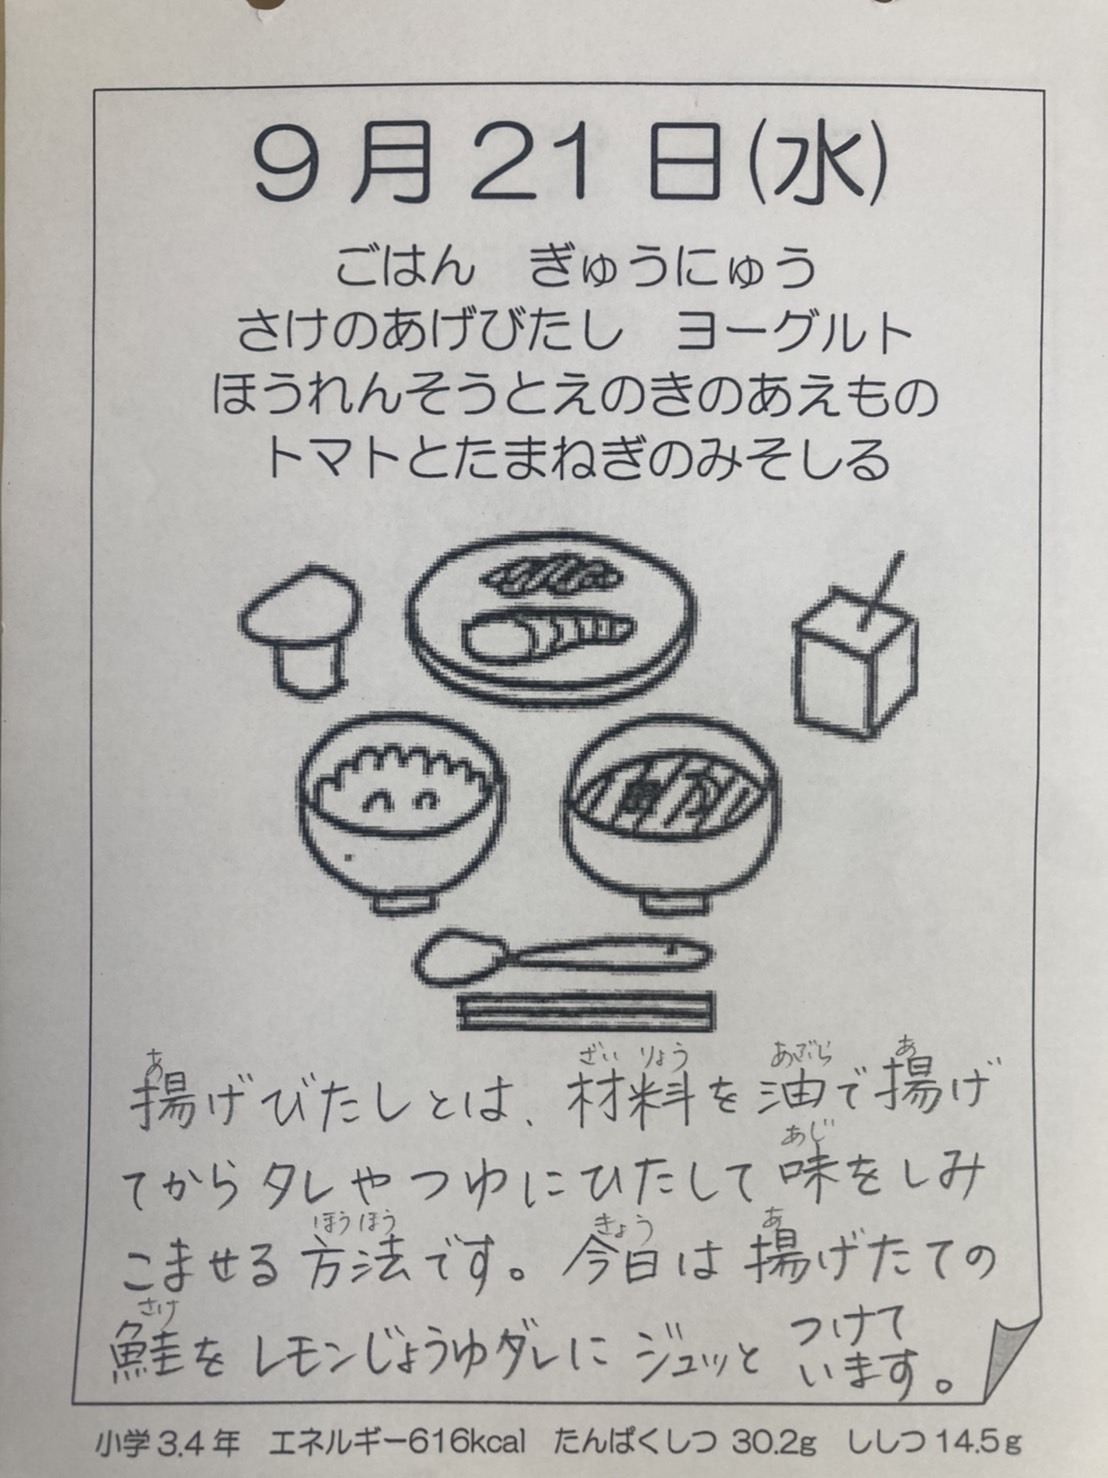 9月21日(水)
ごはん　ぎゅうにゅう
さけのあげびたし　ヨーグルト
ほうれんそうとえのきのあえもの
トマトとたまねぎのみそしる
あ ざい りょう あぶら あ
揚げびたしとは、材料を油で揚げ
あじ
てからタレやつゆにひたして味をしみ
ほう ほう きょう あ
こませる方法です。今日は揚げたての
さけ
鮭をレモンじょうゆダレにジュッとつけて
います。
小学3.4年　エネルギー616kcal　たんぱくしつ 30.2g　ししつ14.5g